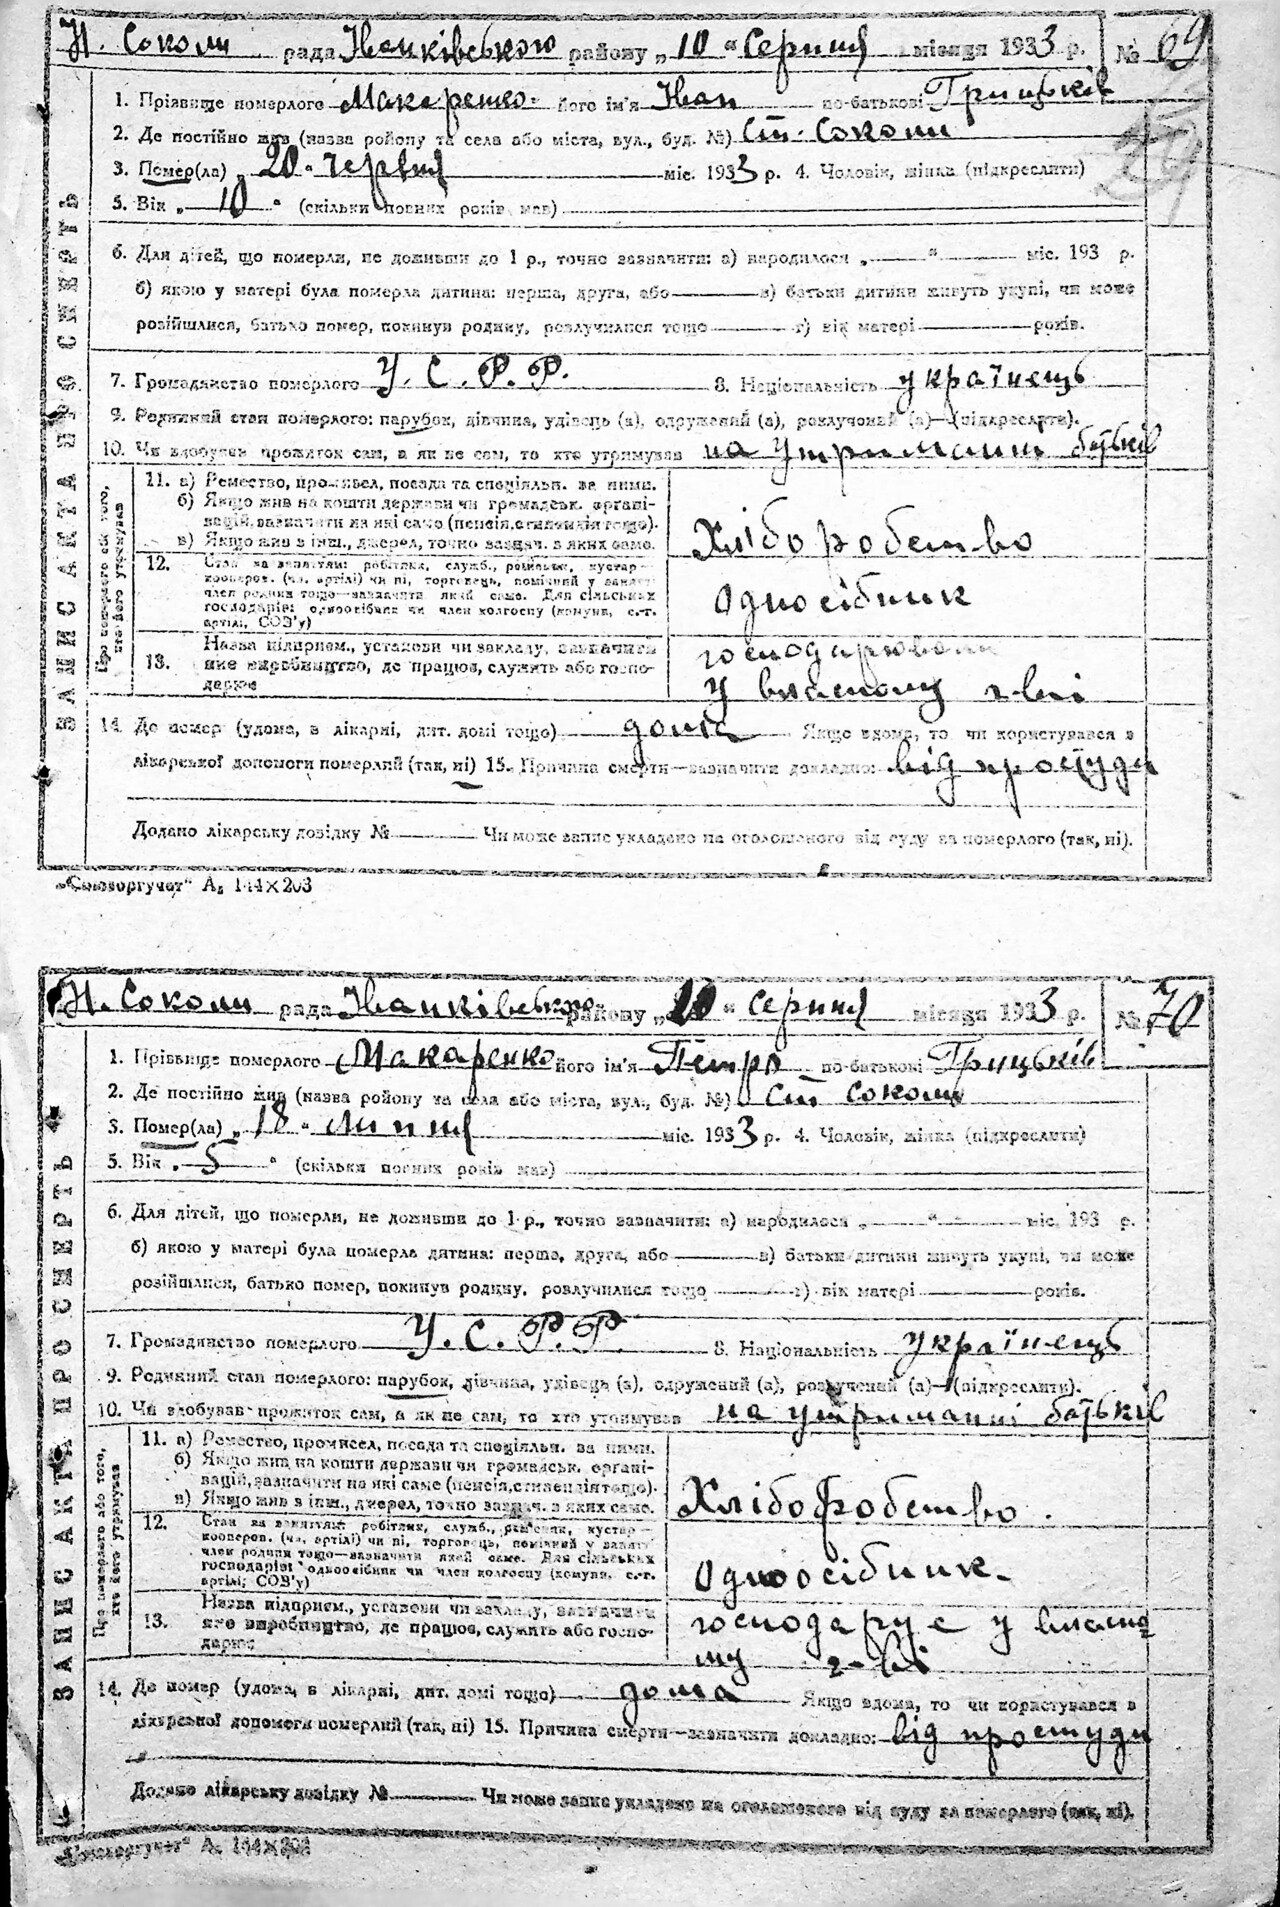 Н. Соколи рада Іванківського району „10" Серпня місяця 1933 р. № 69
1. Прізвище померлого Макаренко його ім'я Іван по-батькові Грицьків
2. Де постійно жив (назва району та села або міста, вул., буд. №) Ст. Соколи
3. Помер(ла) „20" червня міс. 1933 р. 4. Чоловік, жінка (підкреслити)
5. Вік „10" (скільки повних років мав)
6. Для дітей, що померли, не доживши до 1 р., точно зазначити: а) народилося „ " міс. 193 р.
б) якою у матері була померла дитина: перша, друга, або в) батьки дитини живуть укупі, чи може
розійшлися, батько помер, покинув родину, розлучилися тощо г) вік матері років.
7. Громадянство померлого У.С.Р.Р. 8. Національність українець
9. Родинний стан померлого: парубок, дівчина, удівець (а), одружений (а), розлучений (а)—(підкреслити).
10. Чи здобував прожиток сам, а як не сам, то хто утримував на утриманні батьків
ЗАПИС АКТА ПРО СМЕРТЬ
Про померлого або того, хто його утримував
11. а) Ремество, промисел, посада та спеціяльн. за ними.
б) Якщо жив на кошти держави чи громадськ. органі-
зацій, зазначити на які саме (пенсія, стипендія тощо).
в) Якщо жив з інш., джерел, точно зазнач. з яких саме.
Хліборобство
12. Стан за заняттям: робітник, служб., ремісник, кустар—
кооперов. (чл. артілі) чи ні, торговець, помічний у занятт
член родини тощо—зазначити який саме. Для сільських
господарів: одноосібник чи член колгоспу (комуна, с.-г.
артілі, СОЗ'у)
Одноосібник
13. Назва підприєм., установи чи закладу, зазначити
яке виробництво, де працює, служить або госпо-
дарює
господарював
у власному г-ві
14. Де помер (удома, в лікарні, дит. домі тощо) дома Якщо вдома, то чи користувався з
лікарської допомоги померлий (так, ні) 15. Причина смерти—зазначити докладно: від простуди
Додано лікарську довідку № Чи може запис укладено на оголошеного від суду за померлого (так, ні).
„Союзоргучет" А₅ 144×203
Н. Соколи рада Іванківського району „10" Серпня місяця 1933 р. № 70
1. Прізвище померлого Макаренко його ім'я Петро по-батькові Грицьків
2. Де постійно жив (назва району та села або міста, вул., буд. №) Ст Соколи
3. Помер(ла) „18" Липня міс. 1933 р. 4. Чоловік, жінка (підкреслити)
5. Вік „5" (скільки повних років мав)
6. Для дітей, що померли, не доживши до 1 р., точно зазначити: а) народилося „ " міс. 193 р.
б) якою у матері була померла дитина: перша, друга, або в) батьки дитини живуть укупі, чи може
розійшлися, батько помер, покинув родину, розлучилися тощо г) вік матері років.
7. Громадянство померлого У.С.Р.Р. 8. Національність українець
9. Родинний стан померлого: парубок, дівчина, удівець (а), одружений (а), розлучений (а)—(підкреслити).
10. Чи здобував прожиток сам, а як не сам, то хто утримував на утриманні батьків
ЗАПИС АКТА ПРО СМЕРТЬ
Про померлого або того, хто його утримував
11. а) Ремество, промисел, посада та спеціяльн. за ними.
б) Якщо жив на кошти держави чи громадськ. органі-
зацій, зазначити на які саме (пенсія, стипендія тощо).
в) Якщо жив з інш., джерел, точно зазнач. з яких саме.
Хліборобство.
12. Стан за заняттям: робітник, служб., ремісник, кустар—
кооперов. (чл. артілі) чи ні, торговець, помічний у занятт
член родини тощо—зазначити який саме. Для сільських
господарів: одноосібник чи член колгоспу (комуна, с.-г.
артілі, СОЗ'у)
Одноосібник.
13. Назва підприєм., установи чи закладу, зазначити
яке виробництво, де працює, служить або госпо-
дарює
господарує у власно
му г-ві
14. Де помер (удома, в лікарні, дит. домі тощо) дома Якщо вдома, то чи користувався з
лікарської допомоги померлий (так, ні) 15. Причина смерти—зазначити докладно: від простуди
Додано лікарську довідку № Чи може запис укладено на оголошеного від суду за померлого (так, ні).
„Союзоргучет" А₅ 144×203